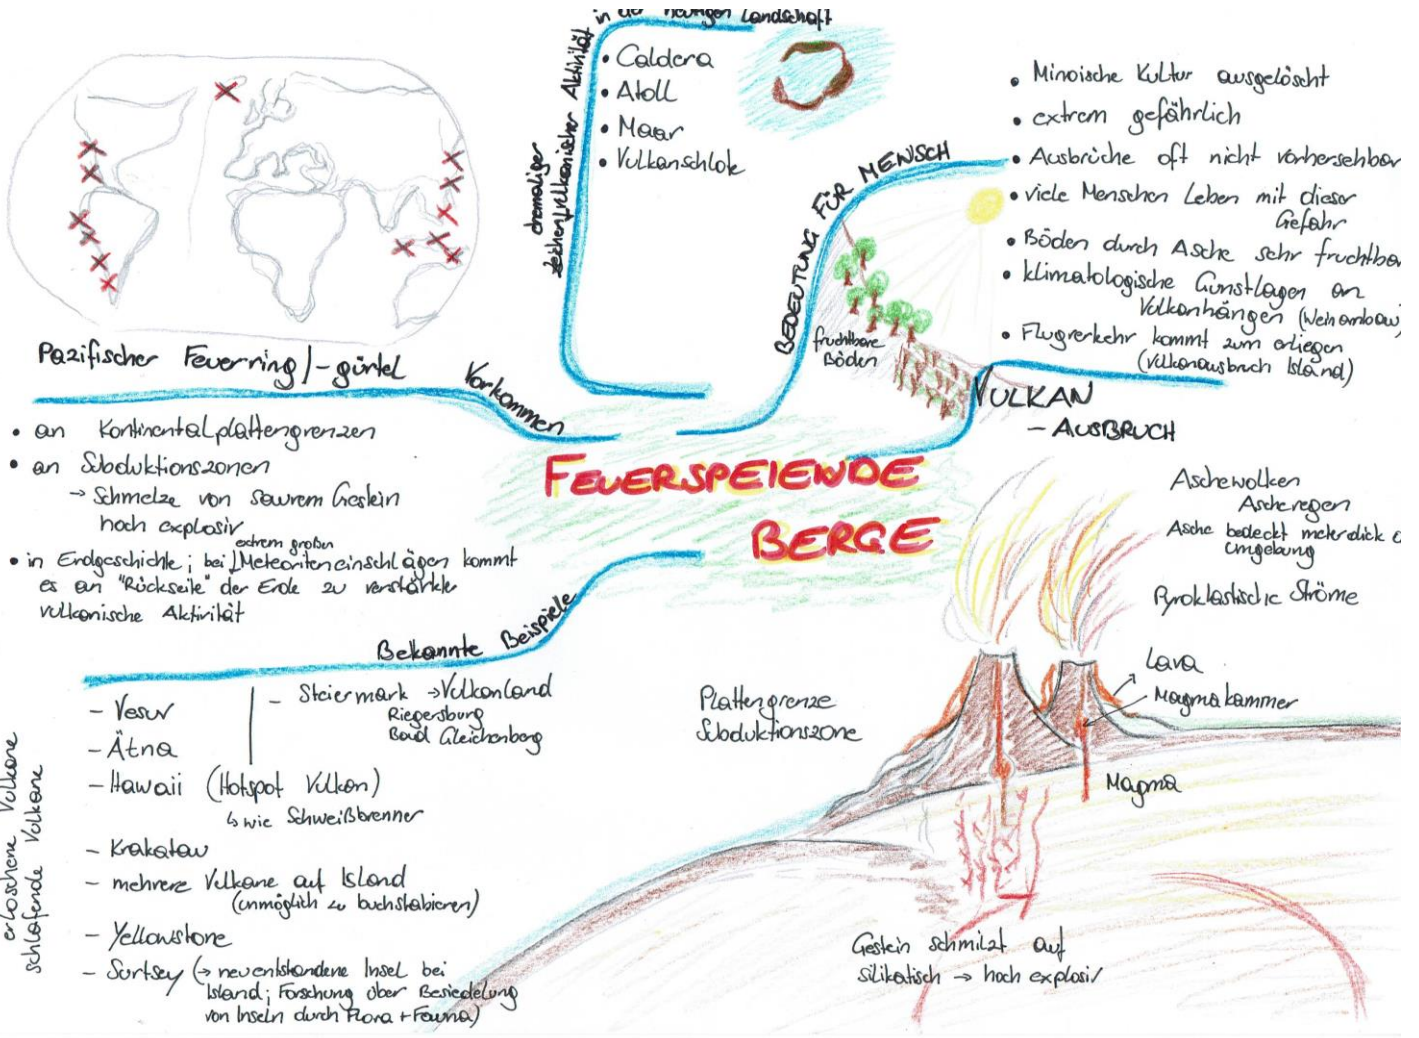 in der heutigen Landschaft
ehemaliger
Zeichen vulkanischer Aktivität
• Caldera
• Atoll
• Maar
• Vulkanschlote
BEDEUTUNG FÜR MENSCH
• Minoische Kultur ausgelöscht
• extrem gefährlich
• Ausbrüche oft nicht vorhersehbar
• viele Menschen Leben mit dieser
Gefahr
• Böden durch Asche sehr fruchtbar
• klimatologische Gunstlagen an
Vulkanhängen (Weinanbau)
• Flugverkehr kommt zum erliegen
(Vulkanausbruch Island)
fruchtbare
Böden
Pazifischer Feuerring/-gürtel
Vorkommen
• an Kontinentalplattengrenzen
• an Subduktionszonen
→ Schmelze von saurem Gestein
hoch explosiv
• in Erdgeschichte; bei extrem großen Meteoriteneinschlägen kommt
es an "Rückseite" der Erde zu verstärkter
vulkanische Aktivität
FEUERSPEIENDE
BERGE
VULKAN
- AUSBRUCH
Aschewolken
Ascheregen
Asche bedeckt meterdick
Umgebung
Pyroklastische Ströme
Lava
Magmakammer
Magma
Plattengrenze
Subduktionszone
Gestein schmilzt auf
silikatisch → hoch explosiv
Bekannte Beispiele
- Vesuv
- Ätna
- Hawaii (Hotspot Vulkan)
↳ wie Schweißbrenner
- Krakatau
- mehrere Vulkane auf Island
(unmöglich zu buchstabieren)
- Yellowstone
- Surtsey (→ neuentstandene Insel bei
Island; Forschung über Besiedelung
von Inseln durch Flora + Fauna)
- Steiermark → Vulkanland
Riegersburg
Bad Gleichenberg
erloschene Vulkane
schlafende Vulkane